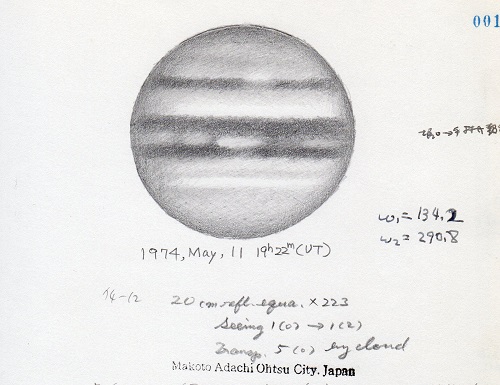 001
ω₁= 134.2
ω₂= 290.8
1974, May, 11 19h22m(UT)
74-12 20 cm refl. equa. ×223
Seeing 1(0) → 1(2)
Transp. 5(0) by cloud
Makoto Adachi Ohtsu City. Japan